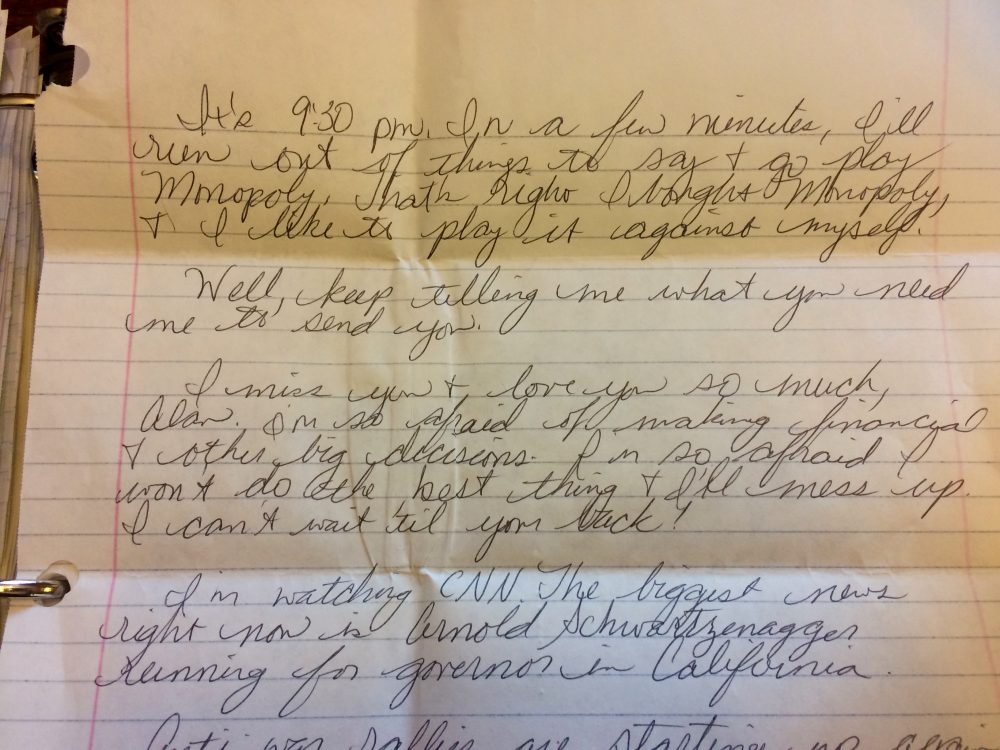 It's 9:30 pm. In a few minutes, I'll
run out of things to say + go play
Monopoly. That's right I bought Monopoly,
+ I like to play it against myself.
Well, keep telling me what you need
me to send you.
I miss you + love you so much,
Alan. I'm so afraid of making financial
+ other big decisions. I'm so afraid I
won't do the best thing + I'll mess up.
I can't wait 'til your back!
I'm watching CNN. The biggest news
right now is Arnold Schwartzenagger
running for governor in California.
Anti war rallies are starting up again